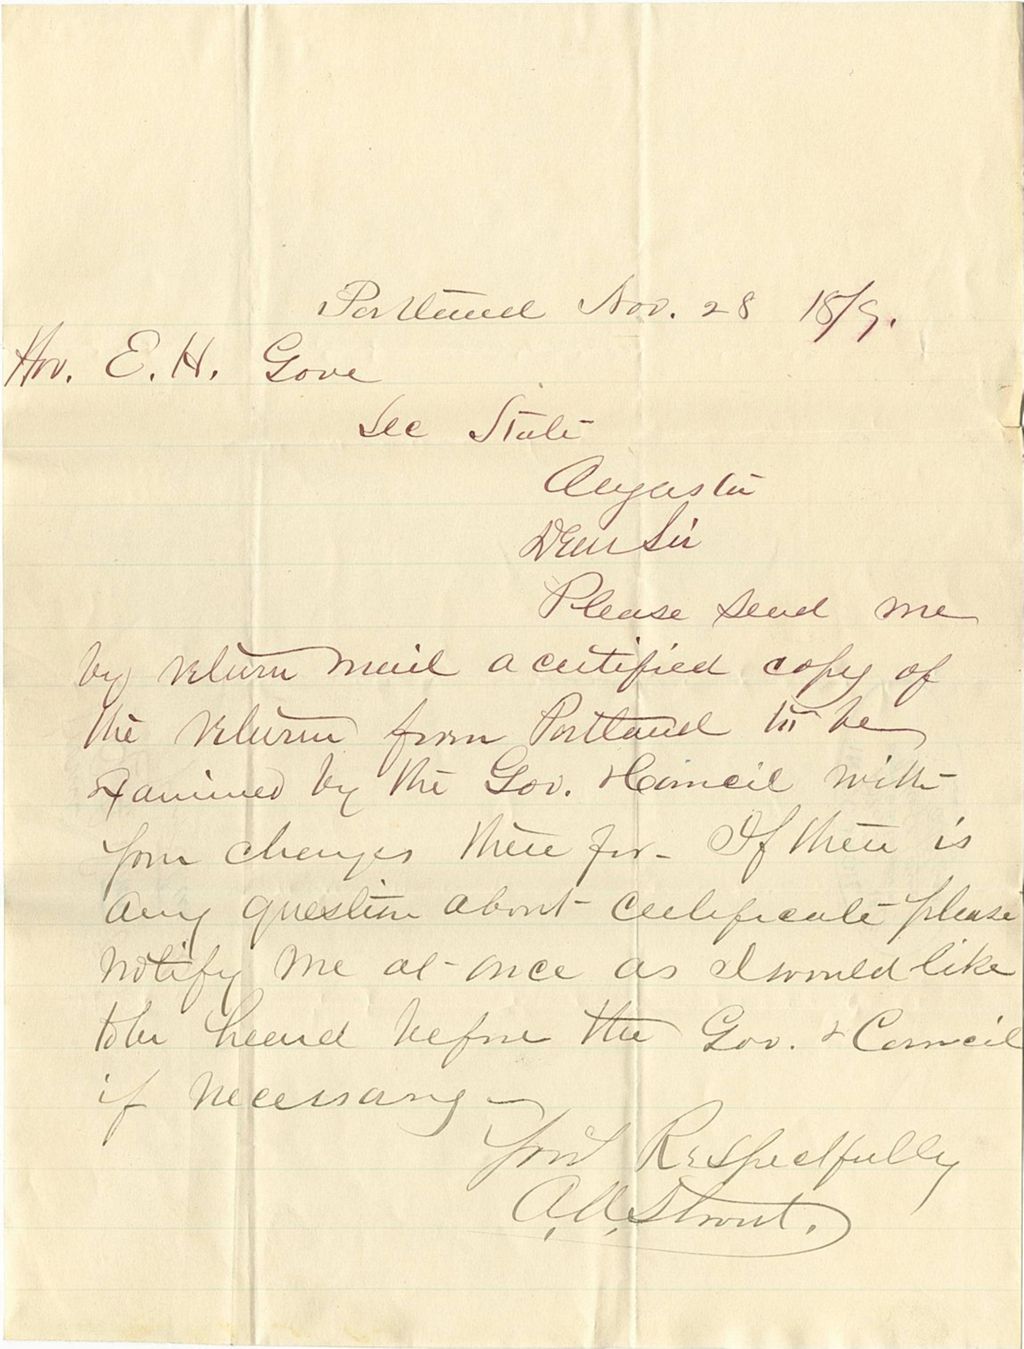 Portland Nov. 28 1879.
Hon. E. H. Gove
Sec State
Augusta
Dear Sir
Please send me
by return mail a certified copy of
the return from Portland to be
examined by the Gov. & Council with
your charges there for - If there is
any question about certificate please
notify me at once as I would like
to be heard before the Gov. & Council
if necessary -
Your Respectfully
A. A. Strout.